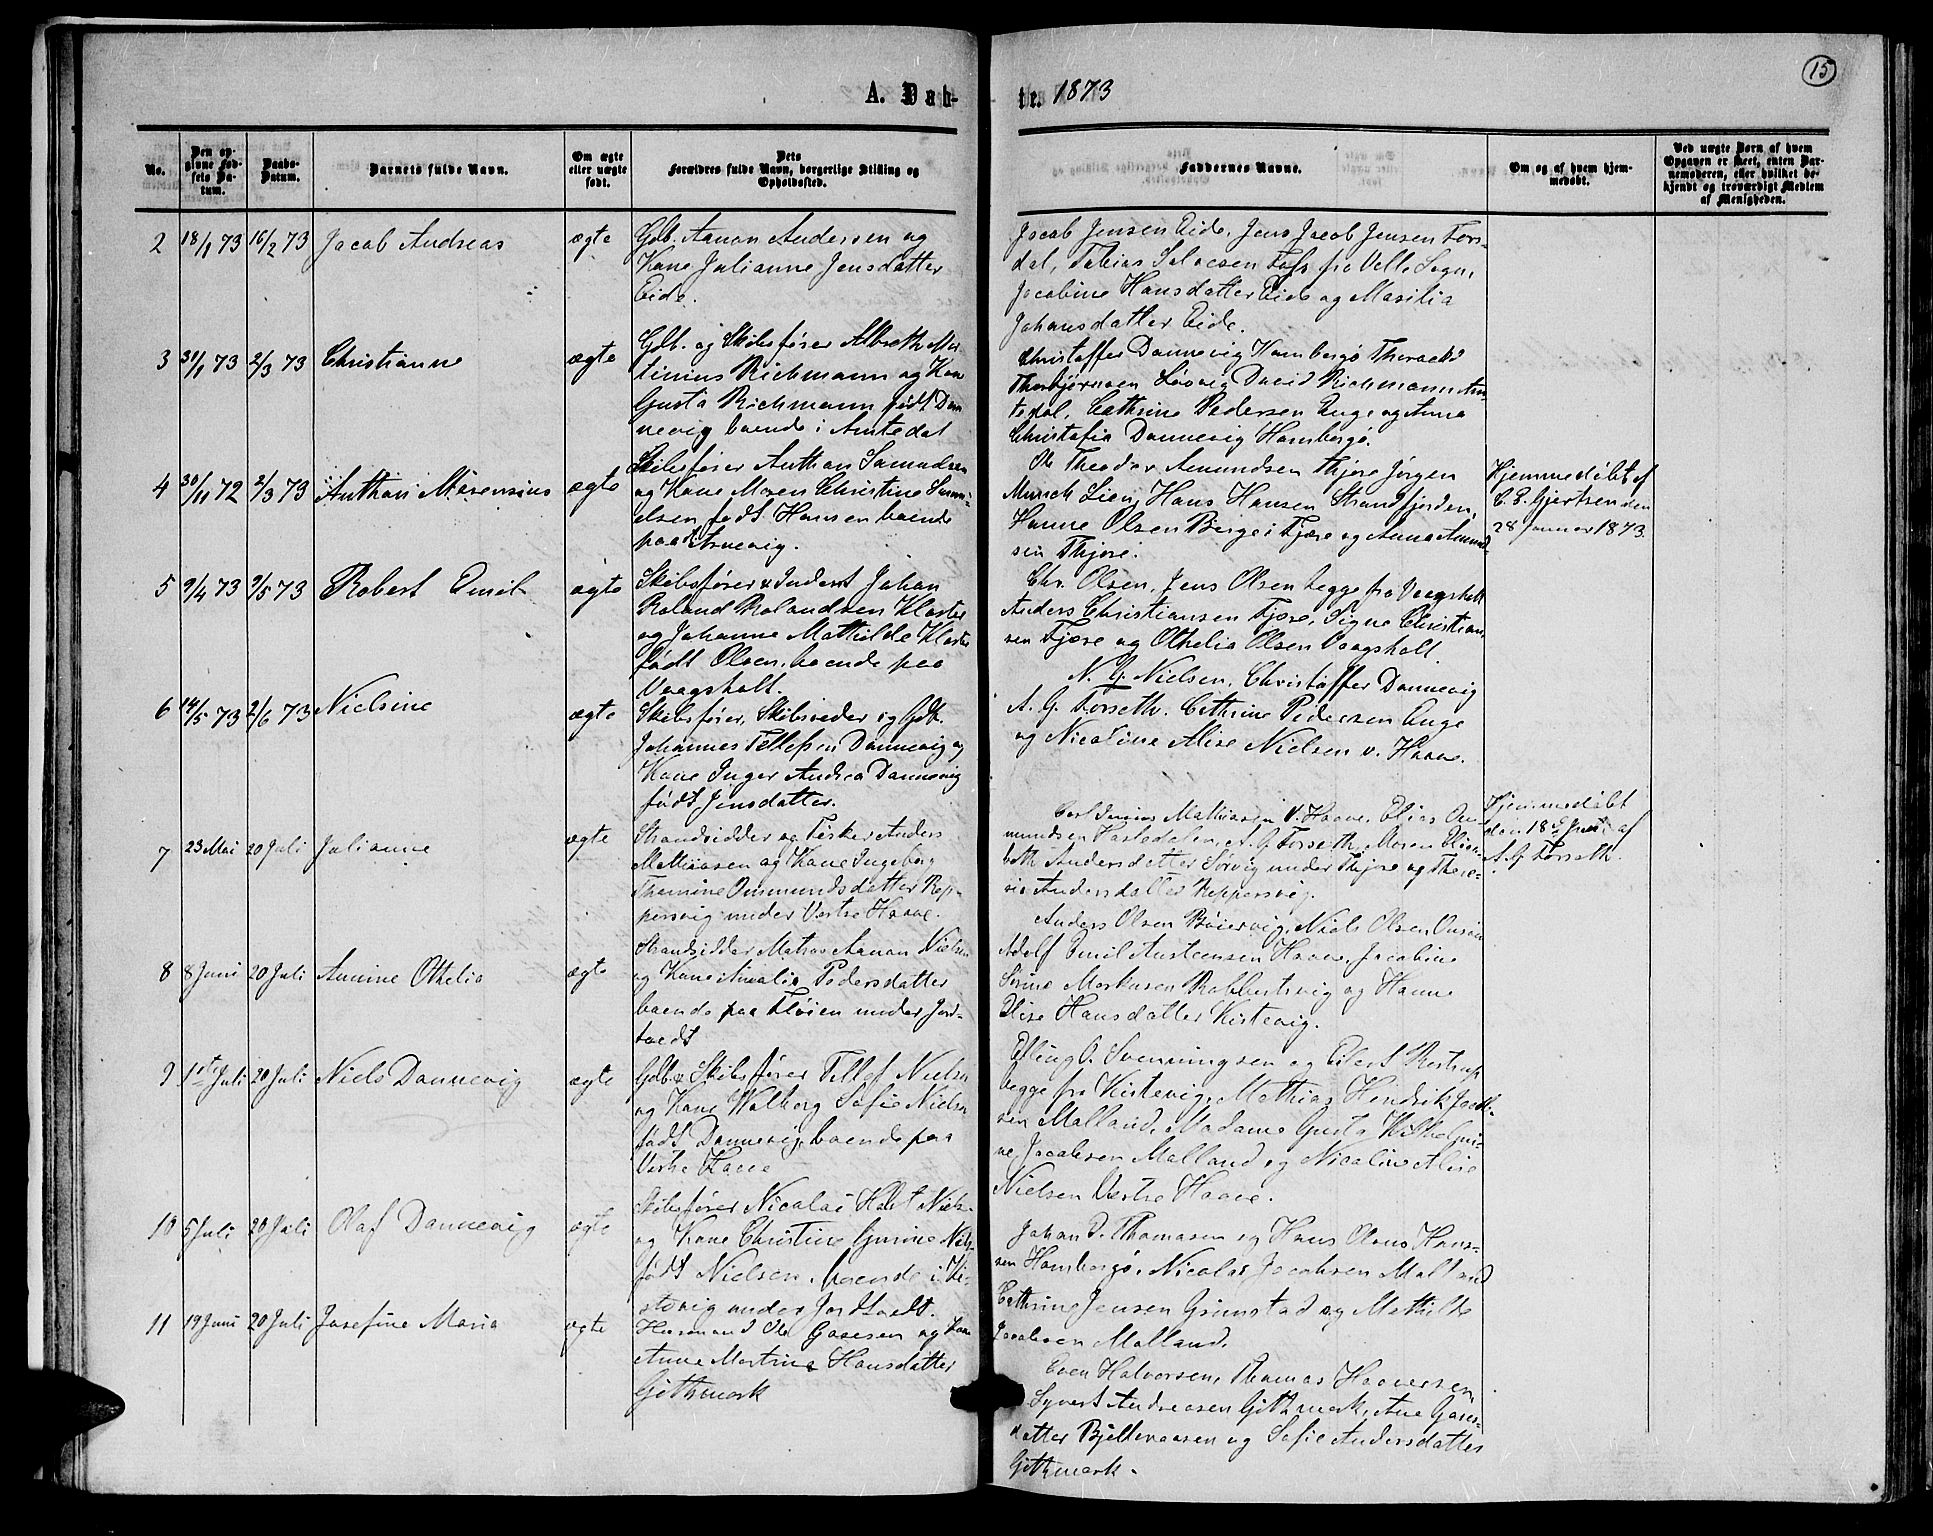 15
A. Dåb-
te. 1873
No.
Den op-
givne Fød-
sels Da-
tum.
Daabs-
Datum.
Barnets fulde Navn.
Om ægte
eller uægte
født.
Dets
Forældres fulde Navn, borgerlige Stilling og
Opholdssted.
Faddernes Navne.
Om og af hvem hjem-
medøbt.
Ved uægte Børn af hvem
Opgaven er skeet, enten Bar-
nemoderen, eller hvilket be-
kjendt og troværdigt Medlem
af Menigheden.
2 18/1 73 16/2 73 Jacob Andreas ægte
Gdb. Aanon Andersen og
Kone Julianne Jensdatter
Eide.
Jacob Jensen Eide, Jens Jacob Jensen Tors-
dal, Tobias Salvesen fra Sogn,
Jacobine Hansdatter Eide og Masilia
Johansdatter Eide.
3 31/1 73 2/3 73 Christianne ægte
Gdb. og Skibsfører Albreth Mar-
tinius Richmann og Kone
Gusta Richmann født Dan-
nevig boende i Amtedal
Christoffer Dannevig Hombergø Thorvald
Thorbjørnsen Løvvig David Richmann Am-
tedal, Cathrine Pedersen Enge og Anna
Christofia Dannevig Hombergø.
4 30/11 72 2/3 73 Anthon Mosensius ægte
Skibsfører Anthon Samuelsen
og Kone Maren Christine Samu-
elsen født Hansen boende
paa Arnevig.
Ole Theodor Amundsen Thjøre Jørgen
Munch Lien, Hans Hansen Strandfjorden,
Hanne Olsen Berge i Fjære og Anna Amund-
sen Thjøre.
Hjemmedøbt af
C. P. Gjertsen den
28 Januar 1873.
5 9/4 73 9/5 73 Robert Emil ægte
Skibsfører & Inderst Johan
Roland Rolandsen Kloster
og Johanne Mathilde Kloster
født Olsen, boende paa
Vaagsholt.
Chr. Olsen, Jens Olsen begge fra Vaagsholt
Anders Christiansen Fjære, Signe Christian-
sen Fjære og Othelia Olsen Vaagsholt.
6 14/5 73 2/6 73 Nielsine ægte
Skibsfører, Skibsreder og Gdb.
Johannes Tellefsen Dannevig og
Kone Inger Andrea Dannevig
født Jensdatter.
N. G. Nielsen, Christoffer Dannevig
A. G. Forseth. Cathrine Pedersen Enge
og Nicoline Alise Nielsen v. Haave.
7 23 Mai 20 Juli Julianne ægte
Strandsidder og Fisker Anders
Mathiasen og Kone Ingeborg
Themine Ommundsdatter Rep-
persvig under Vestre Haave.
Carl Junius Mathiasen V. Haave, Elias Om-
mundsen Hasledalen, A. G. Forseth, Maren Elisa-
beth Andersdatter Sørvig under Thjøre og There-
sie Andersdatter Reppersvig.
Hjemmedøbt
den 18de Juni af
A. G. Forseth.
8 8 Juni 20 Juli Annine Othelia ægte
Strandsidder Matros Aanon Nielsen
og Kone Amalia Pedersdatter
boende paa Fløien under Jord-
tvedt
Anders Olsen Bøiervig, Niels Olsen
Adolf Emil Austensen Haave, Jacobine
Sørine Markusen Robbertsvig og Hanne
Elise Hansdatter Kistevig.
9 1ste Juli 20 Juli Niels Dannevig ægte
Gdb. & Skibsfører Tellef Nielsen
og Kone Walborg Sofie Nielsen
født Dannevig, boende paa
Vestre Haave
Elling O. Svenningsen og Eilert Rostrup
begge fra Kistevig, Mathias Hendrik Jacob-
sen Malland, Madame Gusta Wilhelmi-
ne Jacobsen Malland og Nicoline Alise
Nielsen Vestre Haave.
10 5 Juli 20 Juli Olaf Dannevig ægte
Skibsfører Nicolai Holst Niels-
og Kone Christine Gurine Niels-
født Nielsen, boende i Ki-
stevig under Jordtvedt.
Johan D. Thomasen og Hans Olaus Han-
sen Hombergø, Nicolai Jacobsen Malland
Cathrine Jensen Grimstad og Mathilde
Jacobsen Malland.
11 19 Juni 20 Juli Josefine Maria ægte
Huusmand Ole Gosesen og Kone
Anne Martine Hansdatter
Githmark
Even Halvorsen, Thomas Haaversen,
Syvert Andreasen Githmark, Ane Goses-
datter Bjellevaasen og Sofie Andersdatter
Githmark.